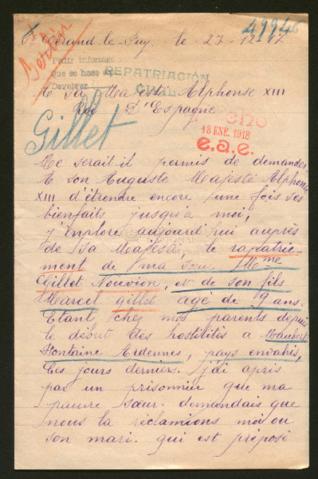 St Gérand-le-Puy, le 27-12-17
4994
Berlin
Pedir informes
Que se haga
Devolver
REPATRIACIÓN
CIVIL
A Sa Majesté Alphonse XIII
Roi D'Espagne
Gillet
18 ENE. 1918
e.a.e.
Me serait-il permis de demander
A son Auguste Majesté Alphonse
XIII d'étendre encore une fois ses
bienfaits jusqu'à moi,
J'Implore aujourd'hui auprès
de Sa Majesté, le rapatrie-
ment de ma sœur Mme
Gillet Nouvion, et de son fils
Marcel gillet agé de 19 ans.
Etant chez mes parents depuis
le début des hostilités a Maubert
Fontaine Ardennes, pays envahis,
Ces jours derniers. j'ai apris
pas un prisonnier que ma
pauvre sœur demandais que
nous la réclamions moi ou
son mari. qui est préposé